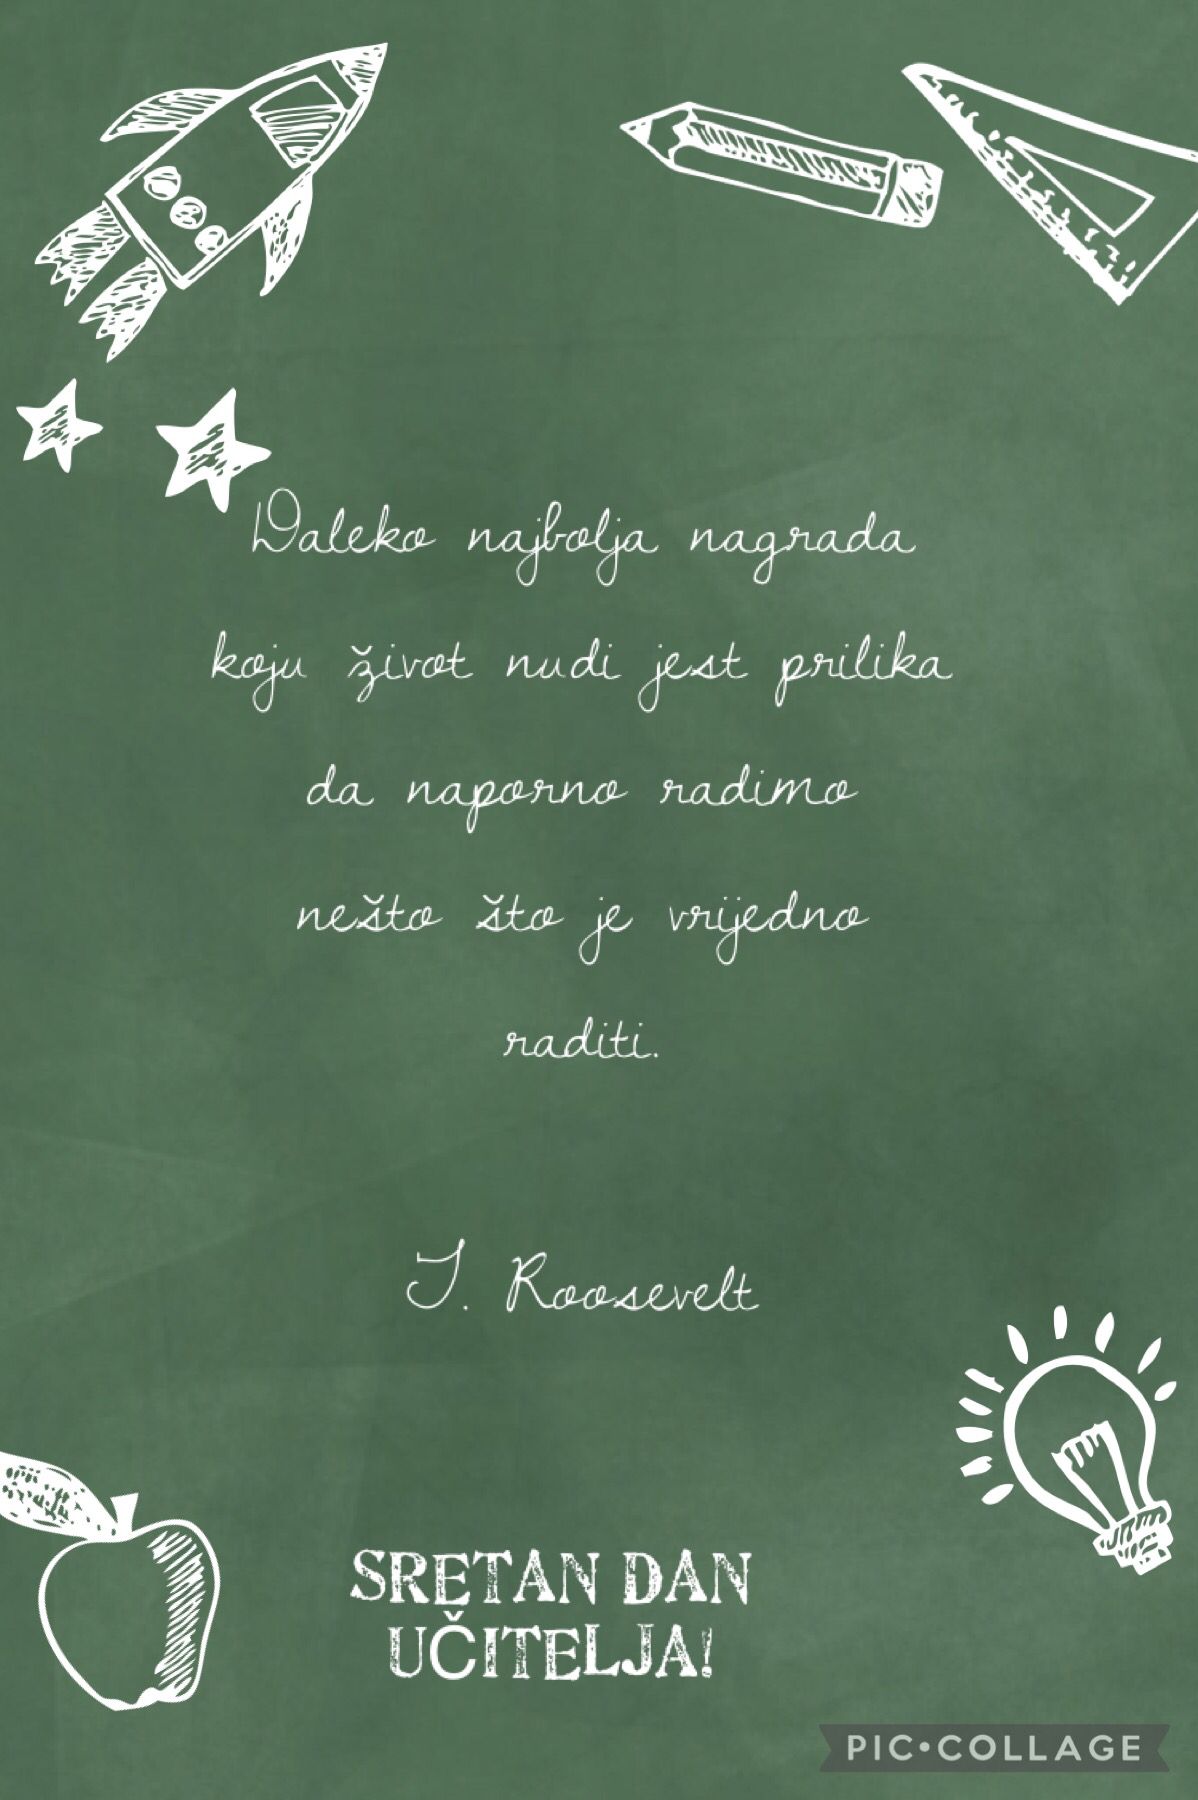 Daleko najbolja nagrada
koju život nudi jest prilika
da naporno radimo
nešto što je vrijedno
raditi.
T. Roosevelt
SRETAN DAN
UČITELJA!
PIC•COLLAGE